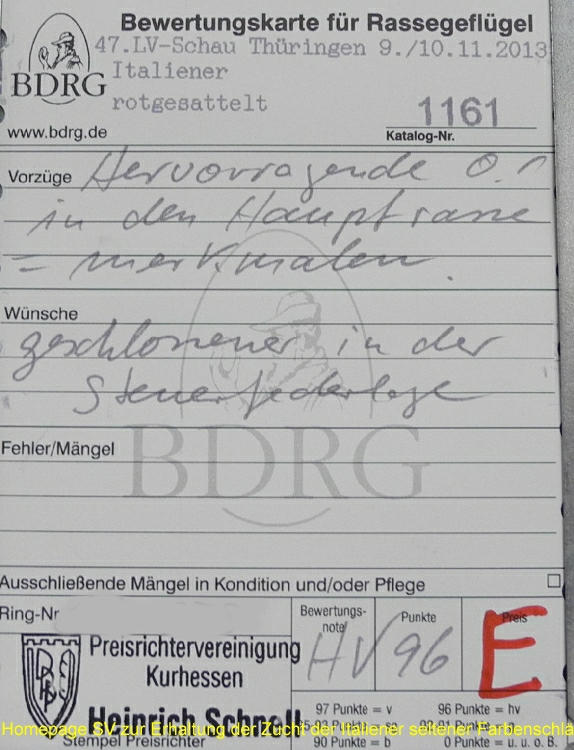 Bewertungskarte für Rassegeflügel
47.LV-Schau Thüringen 9./10.11.2013
BDRG
Italiener
rotgesattelt
1161
www.bdrg.de
Katalog-Nr.
Vorzüge Hervorragende 0.1
in den Hauptrasse
= merkmalen.
Wünsche
geschlossener in der
Steuerfederlage
Fehler/Mängel
BDRG
Ausschließende Mängel in Kondition und/oder Pflege
Ring-Nr
Bewertungs-
note
Punkte
Preis
HV 96 E
Preisrichtervereinigung
Kurhessen
Heinrich Schnell
Stempel Preisrichter
97 Punkte = v
96 Punkte = hv
90 Punkte = b
0 Punkte = u. u. o. B.
Homepage SV zur Erhaltung der Zucht der Italiener seltener Farbenschlä